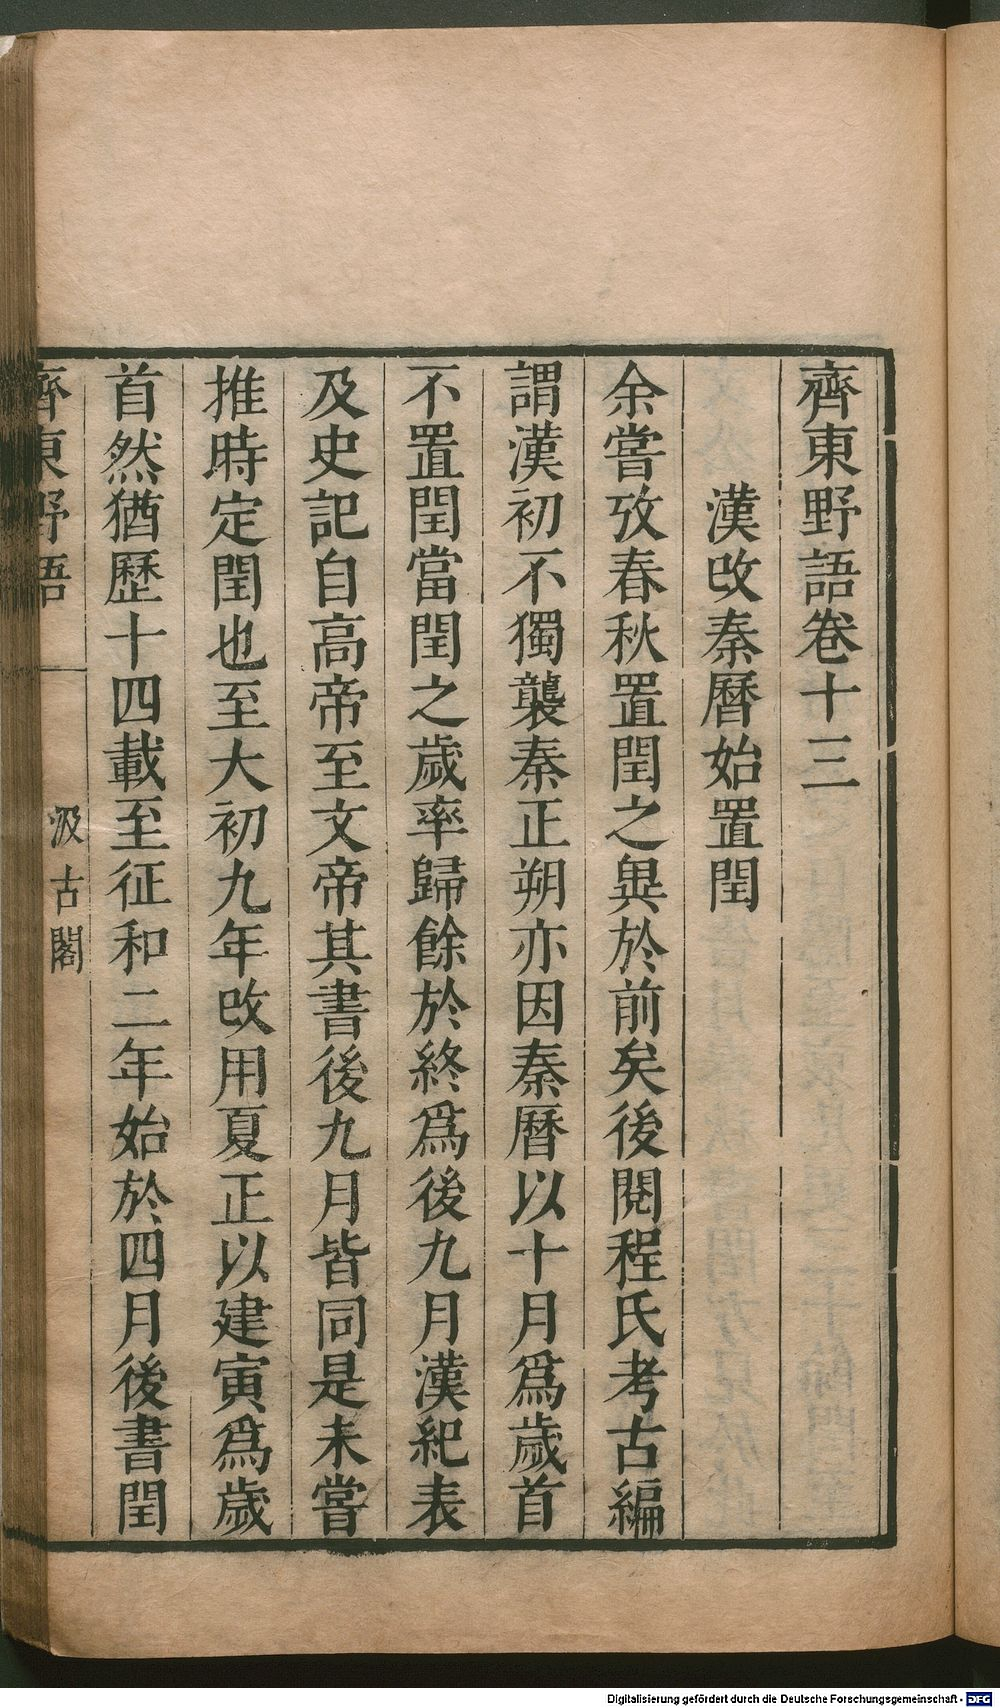 齊東野語卷十三
漢改秦曆始置閏
余嘗攷春秋置閏之異於前矣後閱程氏考古編
謂漢初不獨襲秦正朔亦因秦曆以十月爲歲首
不置閏當閏之歲率歸餘於終爲後九月漢紀表
及史記自高帝至文帝其書後九月皆同是未嘗
推時定閏也至大初九年改用夏正以建寅爲歲
首然猶歷十四載至征和二年始於四月後書閏
齊東野語
汲古閣
Digitalisierung gefördert durch die Deutsche Forschungsgemeinschaft - DFG